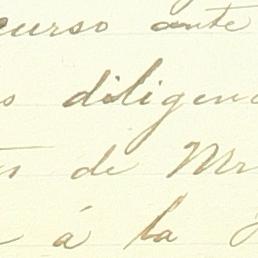 curso ante
s diligenc
s de Mr
á la